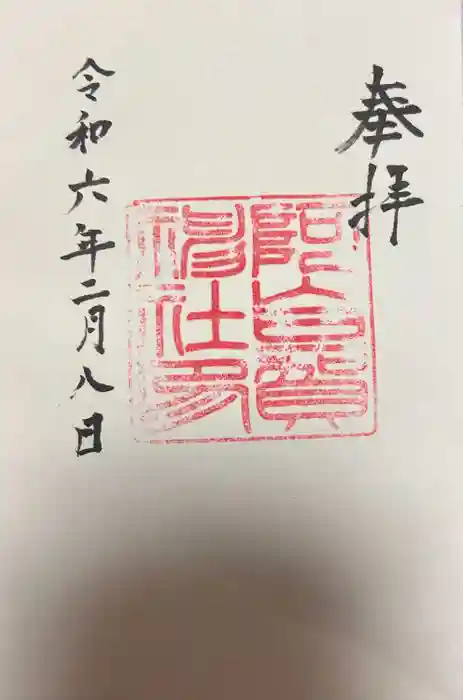 奉拝
神社
令和六年二月八日